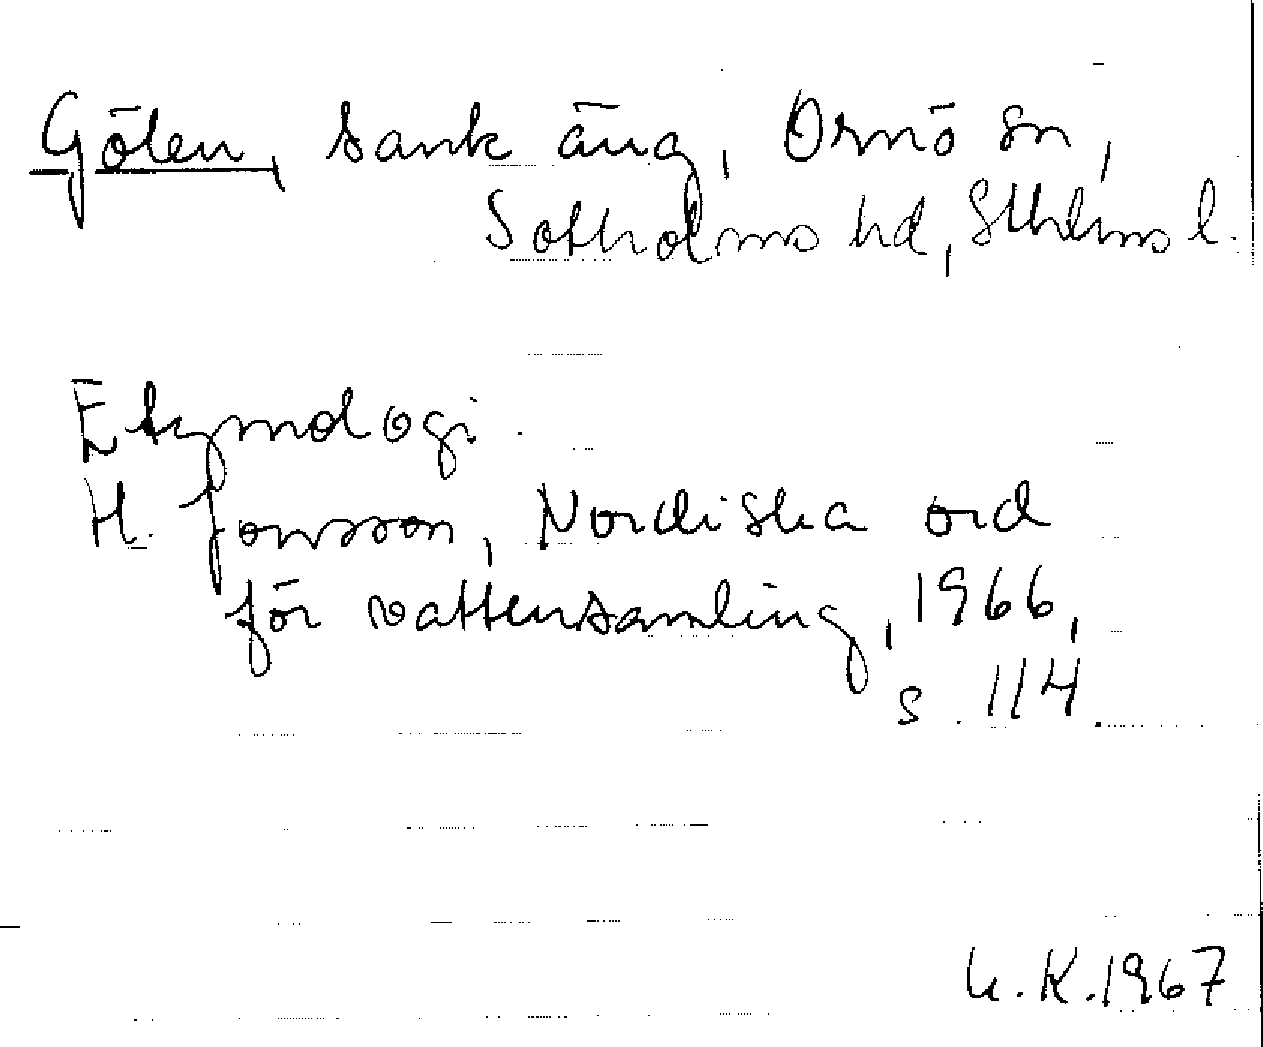 Gölen, sank äng, Ornö sn,
Sotholms hd, Sthlms l.
Etymologi
H. Jonsson, Nordiska ord
för vattensamling, 1966,
s. 114.
U.K. 1967